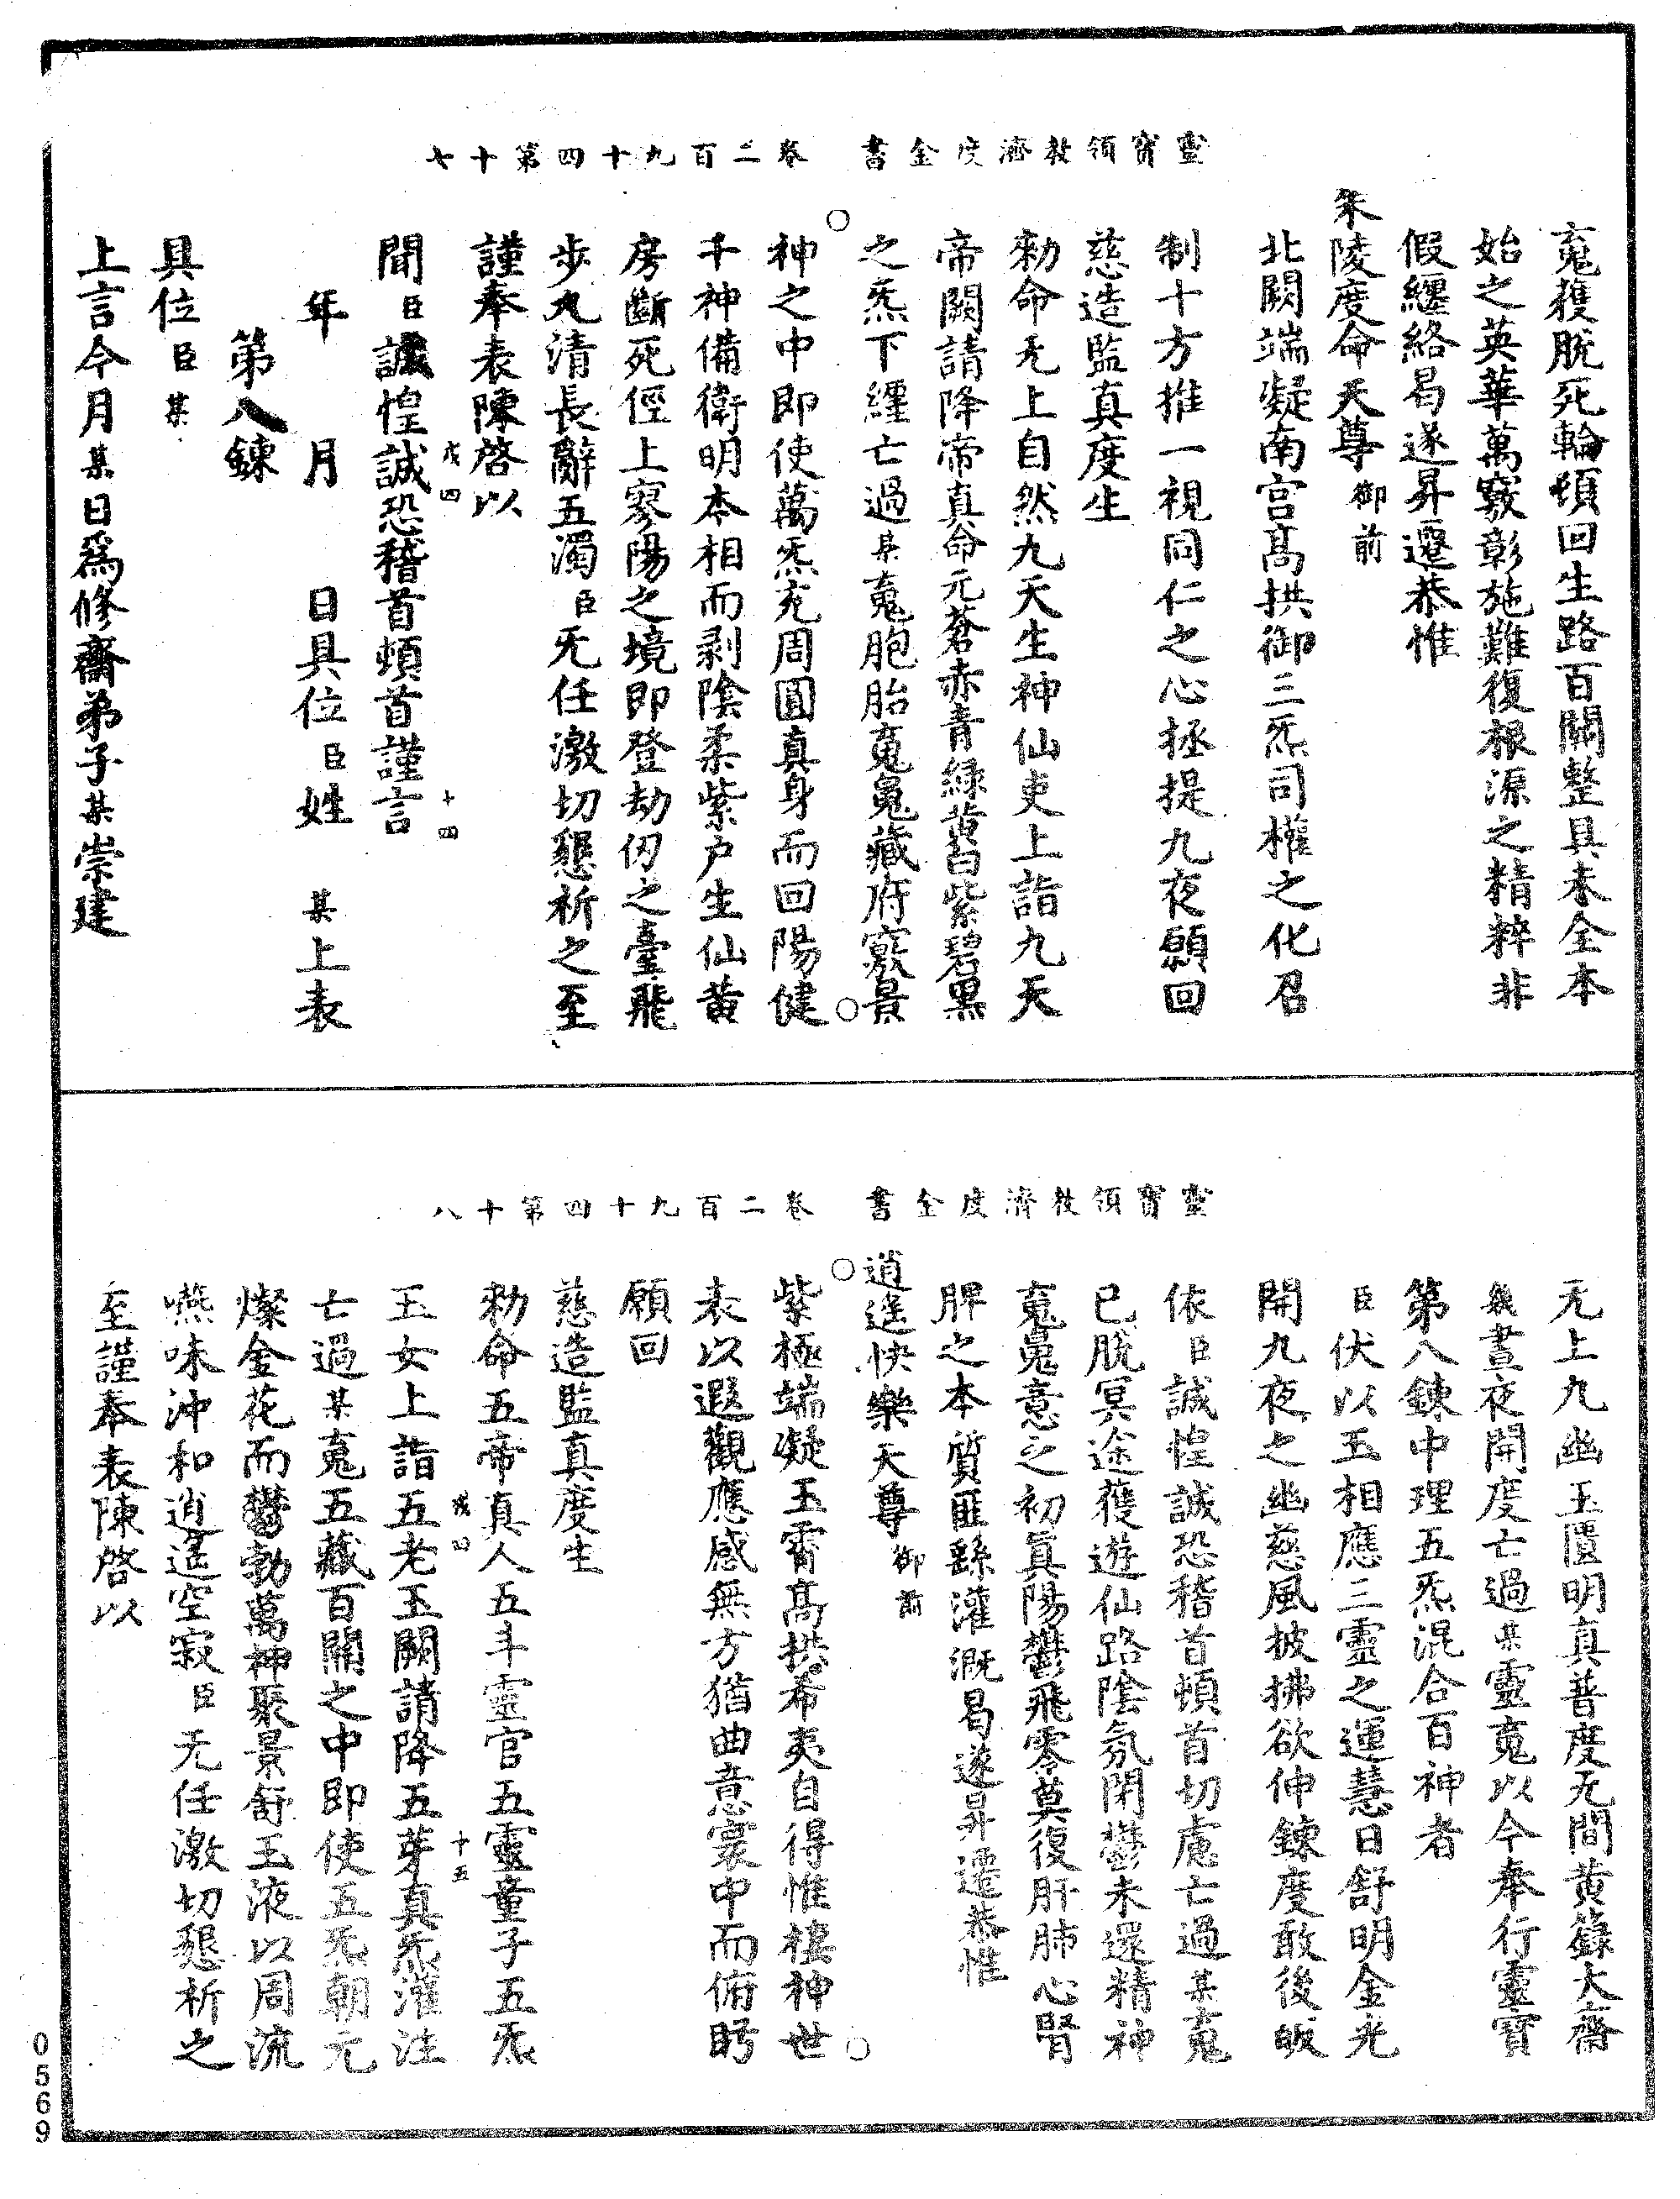 靈寶領教濟度金書　卷二百九十四第十七
䰟獲脫死輪頓回生路百關整具未全本
始之英華萬竅彰施難復根源之精粹非
假纏絡曷遂昇遷恭惟
朱陵度命天尊御前
北闕端凝南宫髙拱御三炁司權之化召
制十方推一視同仁之心拯提九夜願回
慈造監真度生
勑命无上自然九天生神仙吏上詣九天
帝闕請降帝真命元蒼赤青綠黃白紫碧黑
之炁下纏亡過某䰟胞胎䰟䰟藏府竅景
神之中即使萬炁充周圓真身而回陽健
千神備衛明本相而剥陰柔紫户生仙黄
房斷死徑上寥陽之境即登劫仞之臺飛
步九清長辭五濁臣无任激切懇祈之至
謹奉表陳啓以
聞臣誠惶誠恐稽首頓首謹言
戊四　十四
年　月　日具位臣姓　某上表
第八鍊
具位臣某
上言今月某日爲修齋弟子某崇建
靈寶領教濟度金書　卷二百九十四第十八
无上九幽玉匱明真普度无間黄籙大齋
幾晝夜開度亡過某靈䰟以今奉行靈寶
第八鍊中理五炁混合百神者
臣伏以玉相應三靈之運慧日舒明金光
開九夜之幽慈風披拂欲伸鍊度敢後皈
依臣誠惶誠恐稽首頓首切慮亡過某䰟
已脫冥途獲遊仙路陰氛閉鬱未還精神
䰟䰟意之初真陽鬱飛零莫復肝肺心腎
脾之本質匪繇灌溉曷遂昇遷恭惟
逍遥快樂天尊御前
紫極端凝玉霄髙拱希夷自得惟棲神世
表以遐觀應感無方猶曲意寰中而俯盻
願回
慈造監真度生
勑命五帝真人五斗靈官五靈童子五炁
玉女上詣五老玉闕請降五芽真炁灌注
戊四　十五
亡過某䰟五藏百關之中即使五炁朝元
燦金花而鬱勃萬神聚景舒玉液以周流
嚥味沖和逍遥空寂臣无任激切懇祈之
至謹奉表陳啓以
0569